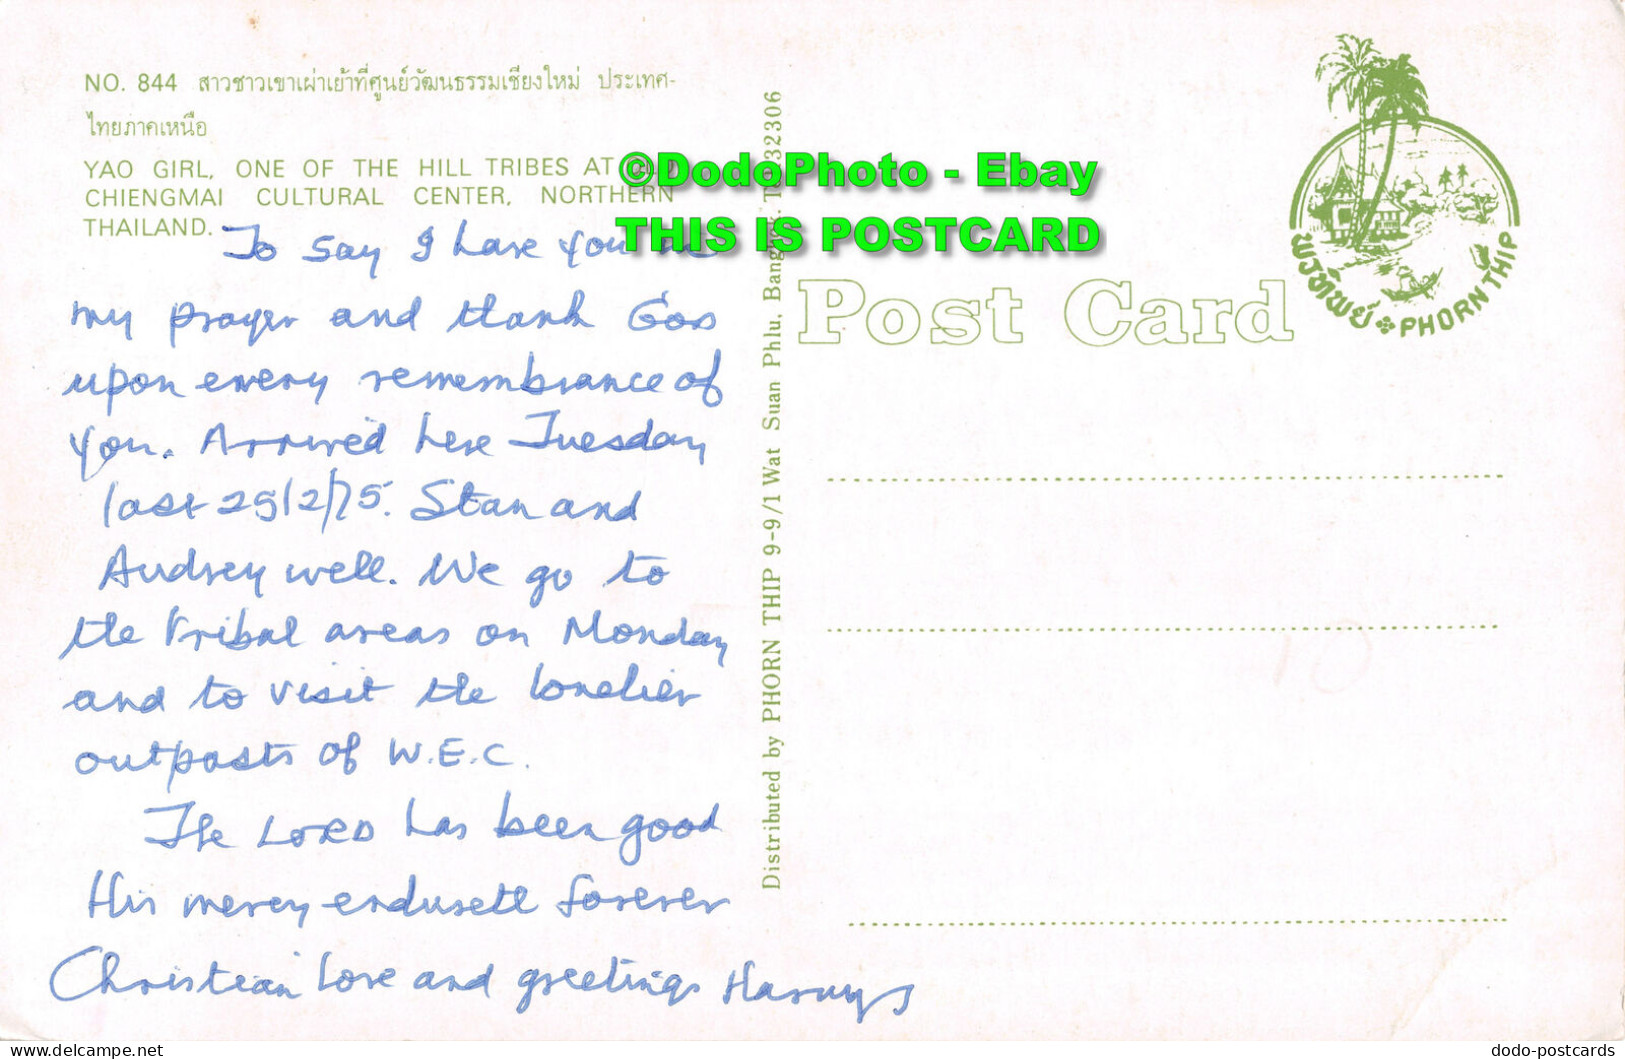 NO. 844 สาวชาวเขาเผ่าเย้าที่ศูนย์วัฒนธรรมเชียงใหม่ ประเทศ-
ไทยภาคเหนือ
YAO GIRL, ONE OF THE HILL TRIBES AT
CHIENGMAI CULTURAL CENTER, NORTHERN
THAILAND.
To say I have you in
my prayer and thank God
upon every remembrance of
you. Arrived here Tuesday
last 25/2/75. Stan and
Audrey well. We go to
the tribal areas on Monday
and to visit the lonelier
outposts of W.E.C.
The LORD has been good
His mercy endureth forever
Christian love and greetings
Distributed by PHORN THIP 9-9/1 Wat Suan Phlu, Bangkok. T. 332306
©DodoPhoto - Ebay
THIS IS POSTCARD
Post Card
พรทิพย์ PHORN THIP
dodo-postcards.delcampe.net